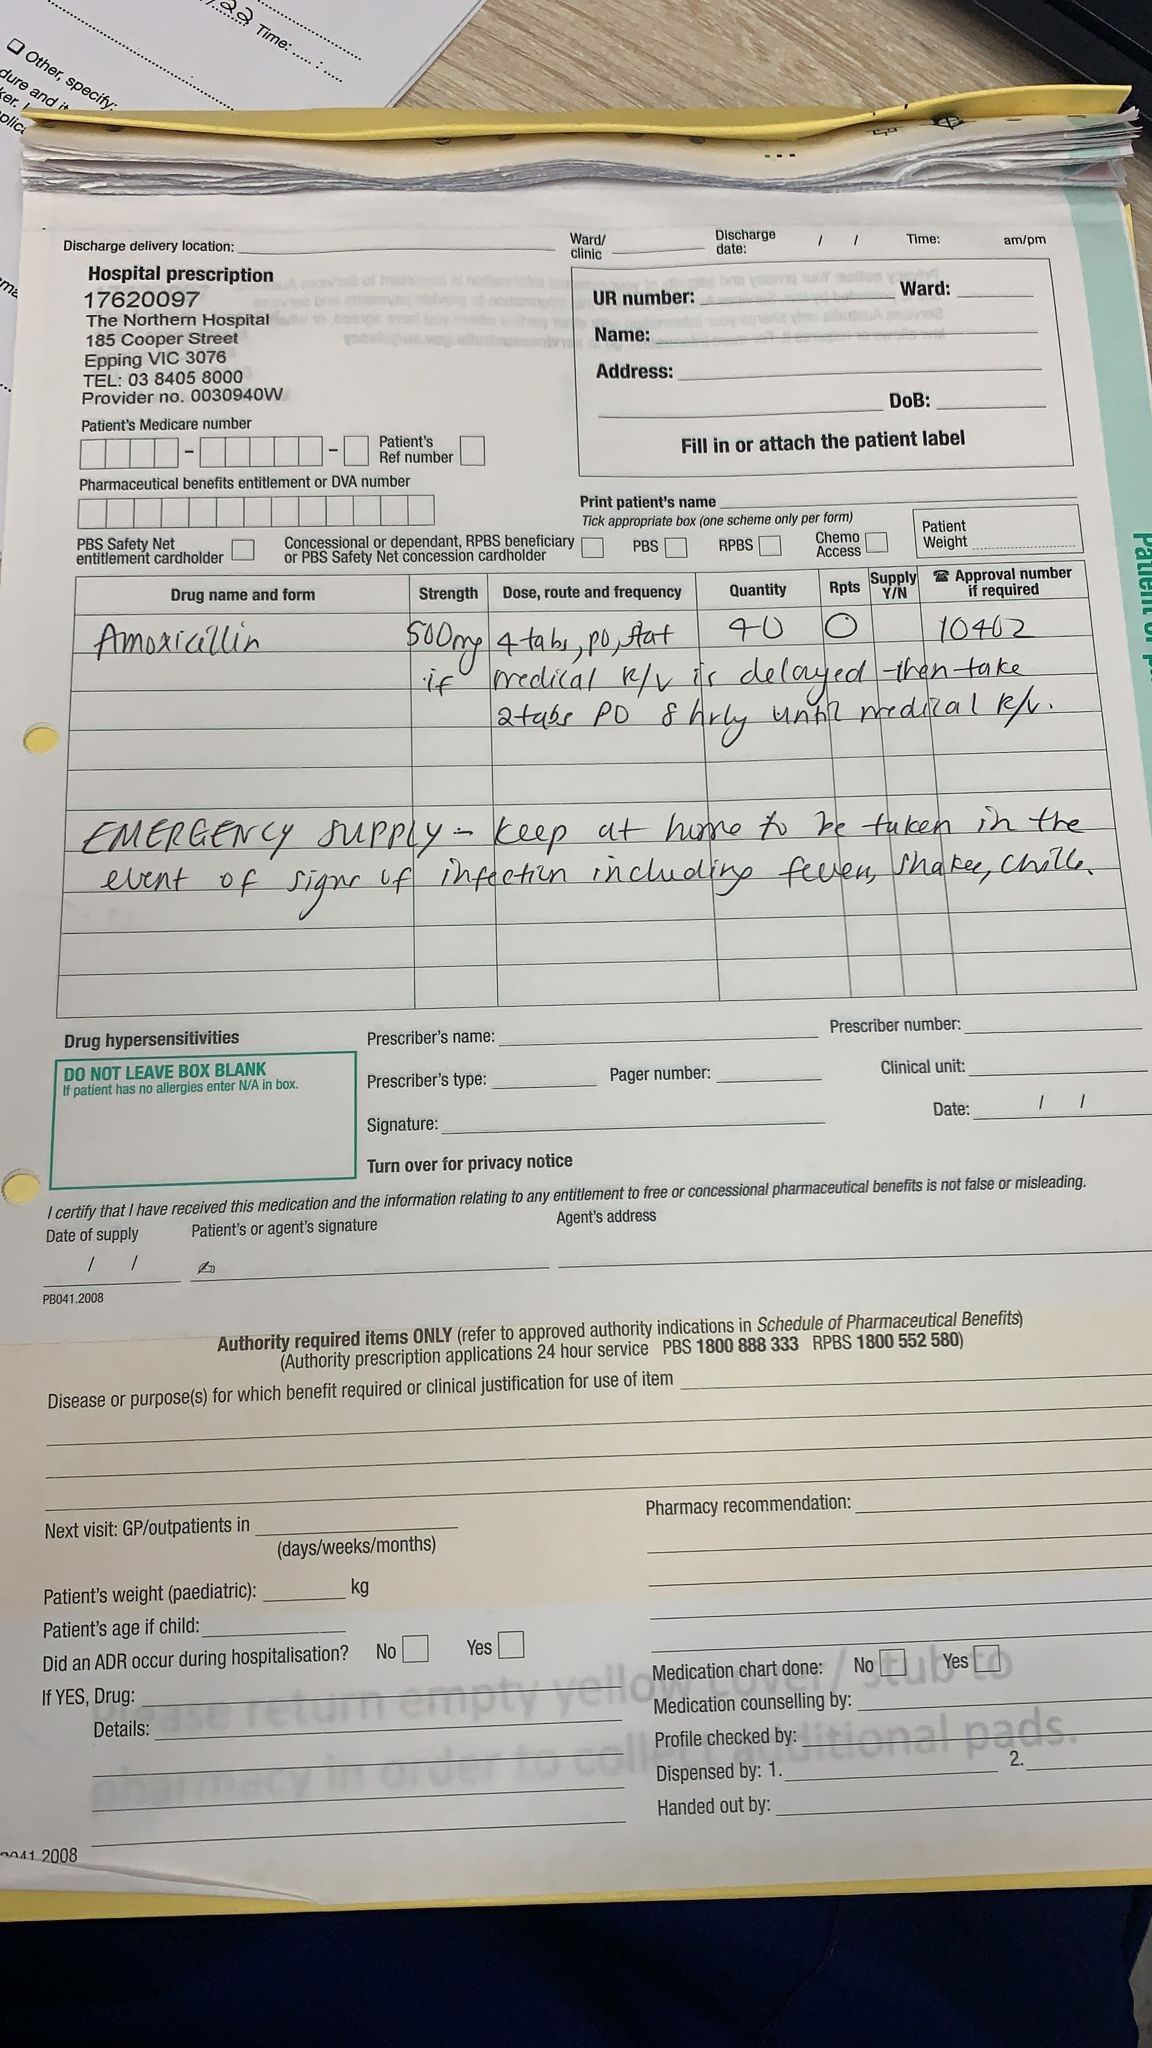 22 Time: .... : ....
❑ Other, specify:
dure and it
Discharge delivery location:
Ward/
clinic
Discharge
date: / / Time: am/pm
Hospital prescription
17620097
The Northern Hospital
185 Cooper Street
Epping VIC 3076
TEL: 03 8405 8000
Provider no. 0030940W
UR number: Ward:
Name:
Address:
DoB:
Fill in or attach the patient label
Patient's Medicare number
- - Patient's
Ref number
Pharmaceutical benefits entitlement or DVA number
Print patient's name
Tick appropriate box (one scheme only per form)
PBS Safety Net
entitlement cardholder
Concessional or dependant, RPBS beneficiary
or PBS Safety Net concession cardholder
PBS RPBS Chemo
Access
Patient
Weight
Drug name and form Strength Dose, route and frequency Quantity Rpts Supply
Y/N ☎ Approval number
if required
Amoxicillin 500mg 4 tabs, PO, stat 40 0 10402
if medical R/V is delayed then take
2 tabs PO 8 hrly until medical R/V.
EMERGENCY SUPPLY - Keep at home to be taken in the
event of signs of infection including fever, shakes, chills.
Drug hypersensitivities
DO NOT LEAVE BOX BLANK
If patient has no allergies enter N/A in box.
Prescriber's name: Prescriber number:
Prescriber's type: Pager number: Clinical unit:
Signature: Date: / /
Turn over for privacy notice
I certify that I have received this medication and the information relating to any entitlement to free or concessional pharmaceutical benefits is not false or misleading.
Date of supply Patient's or agent's signature Agent's address
/ /
PB041.2008
Authority required items ONLY (refer to approved authority indications in Schedule of Pharmaceutical Benefits)
(Authority prescription applications 24 hour service PBS 1800 888 333 RPBS 1800 552 580)
Disease or purpose(s) for which benefit required or clinical justification for use of item
Next visit: GP/outpatients in
(days/weeks/months)
Pharmacy recommendation:
Patient's weight (paediatric): kg
Patient's age if child:
Did an ADR occur during hospitalisation? No Yes
If YES, Drug:
Details:
Medication chart done: No Yes
Medication counselling by:
Profile checked by:
Dispensed by: 1. 2.
Handed out by:
return empty yellow cover / stub to
pharmacy in order to collect additional pads.
041.2008